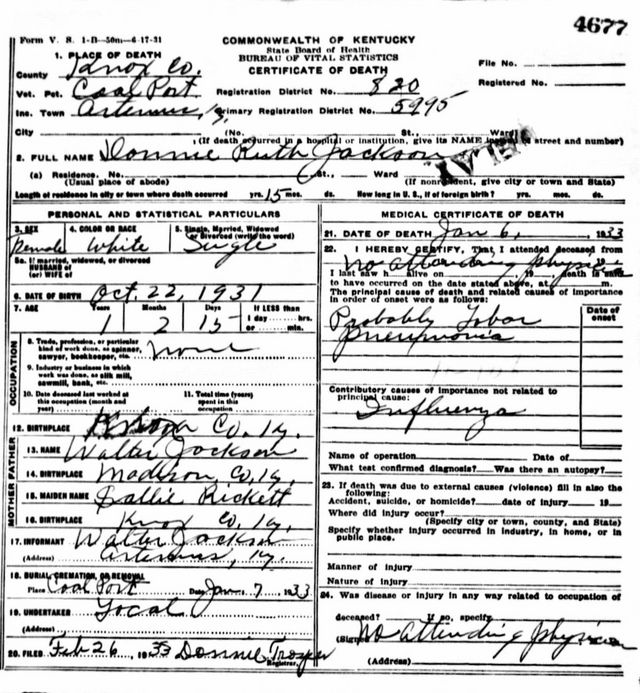 4677
Form V. S. 1-B-50m-6-17-31
COMMONWEALTH OF KENTUCKY
State Board of Health
BUREAU OF VITAL STATISTICS
CERTIFICATE OF DEATH
1. PLACE OF DEATH
County Knox Co.
Vot. Pct. Coal Port
Inc. Town Artemus, Ky
Registration District No. 820
Primary Registration District No. 5995
File No.
Registered No.
City (No. St., Ward)
(If death occurred in a hospital or institution, give its NAME instead of street and number)
2. FULL NAME Donnie Ruth Jackson
(a) Residence. No. St., Ward
(Usual place of abode) (If nonresident, give city or town and State)
Length of residence in city or town where death occurred yrs. 15 mos. ds. How long in U. S., if of foreign birth? yrs. mos. ds.
PERSONAL AND STATISTICAL PARTICULARS
3. SEX 4. COLOR OR RACE 5. Single, Married, Widowed or Divorced (write the word)
Female White Single
5a. If married, widowed, or divorced
HUSBAND of
(or) WIFE of
6. DATE OF BIRTH Oct. 22, 1931
7. AGE Years Months Days If LESS than
1 2 15 1 day hrs. or min.
OCCUPATION
8. Trade, profession, or particular kind of work done, as spinner, sawyer, bookkeeper, etc. none
9. Industry or business in which work was done, as silk mill, sawmill, bank, etc.
10. Date deceased last worked at this occupation (month and year)
11. Total time (years) spent in this occupation
12. BIRTHPLACE Knox Co, Ky.
FATHER
13. NAME Walter Jackson
14. BIRTHPLACE Madison Co, Ky.
MOTHER
15. MAIDEN NAME Sallie Rickett
16. BIRTHPLACE Knox Co, Ky.
17. INFORMANT Walter Jackson
(Address) Artemus, Ky.
18. BURIAL, CREMATION, OR REMOVAL
Place Coal Port Date Jan. 7 1933
19. UNDERTAKER Local
(Address)
20. FILED Feb 26, 1933 Donnie Trosper
Registrar.
MEDICAL CERTIFICATE OF DEATH
21. DATE OF DEATH Jan 6, 1933
22. I HEREBY CERTIFY, That I attended deceased from
No attending physician
I last saw h alive on , 19 , death is said
to have occurred on the date stated above, at m.
The principal cause of death and related causes of importance
in order of onset were as follows:
Date of onset
Probably Lobar
Pneumonia
Contributory causes of importance not related to
principal cause:
Influenza
Name of operation Date of
What test confirmed diagnosis? Was there an autopsy?
23. If death was due to external causes (violence) fill in also the
following:
Accident, suicide, or homicide? date of injury 19
Where did injury occur?
(Specify city or town, county, and State)
Specify whether injury occurred in industry, in home, or in
public place.
Manner of injury
Nature of injury
24. Was disease or injury in any way related to occupation of
deceased? If so, specify
(Signed) No attending physician
(Address)